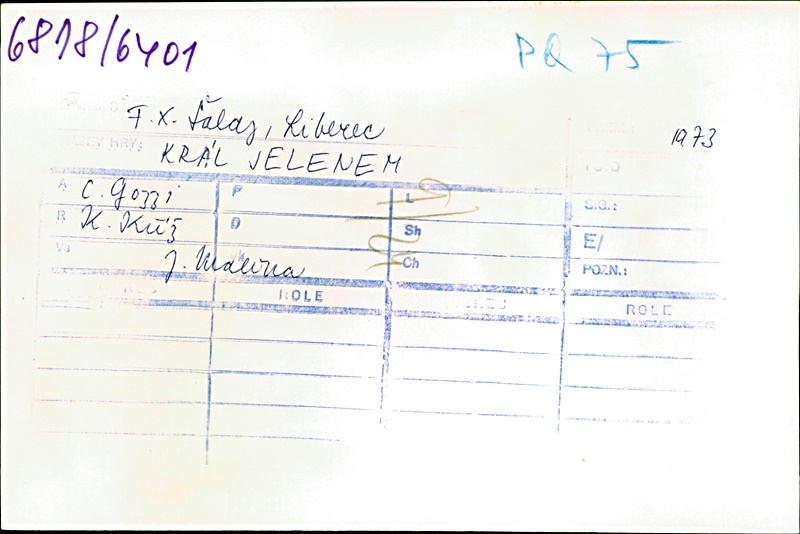 6818/6401
PQ 75
F. X. Šaldy, Liberec
1973
HRY:
KRÁL JELENEM
A C. Gozzi P L
SIG.:
R K. Kříž D Sh
E/
J. Malina Ch
POZN.:
ROLE
ROLE